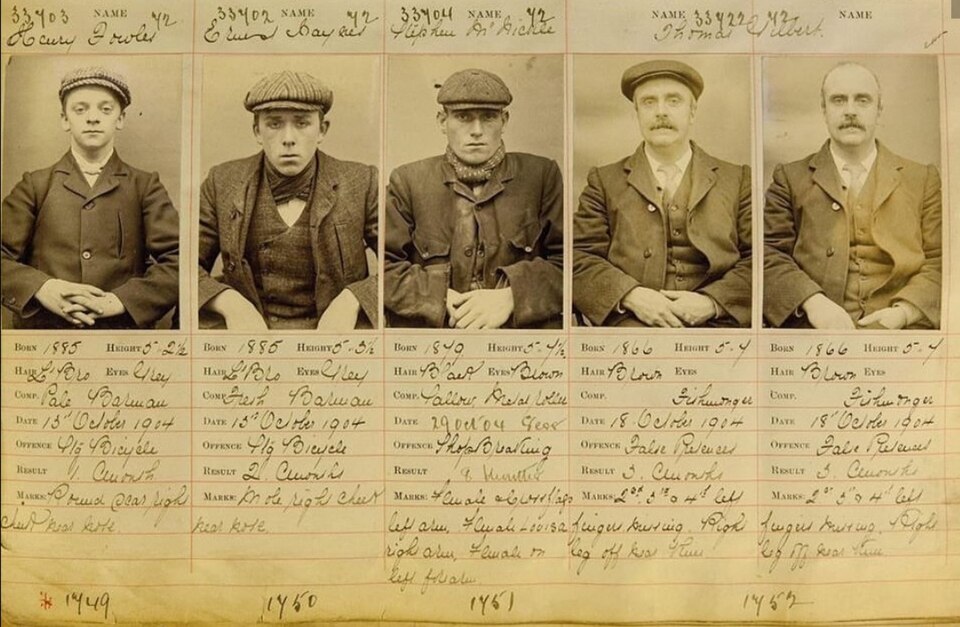 33703 NAME 72
Henry Fowler
33702 NAME 72
Ernest Haynes
33704 NAME 72
Stephen McNickle
NAME 33722 72 NAME
Thomas Gilbert
BORN 1885 HEIGHT 5-2½
HAIR Lt Bro EYES Grey
COMP. Pale Barman
DATE 13th October 1904
OFFENCE Stg Bicycle
RESULT 1. Month
MARKS: Round scar right
cheek near nose.
BORN 1885 HEIGHT 5-3½
HAIR Lt Bro EYES Grey
COMP. Fresh Barman
DATE 13th October 1904
OFFENCE Stg Bicycle
RESULT 2. Months
MARKS: Mole, right cheek
near nose.
BORN 1879 HEIGHT 5-4½
HAIR Black EYES Brown
COMP. Sallow, Metal roller
DATE 29 Oct 04
OFFENCE Shop Breaking
RESULT Months
MARKS: Female
left arm, Female Louisa
right arm, Female on
left forearm.
BORN 1866 HEIGHT 5-4
HAIR Brown EYES
COMP. Fishmonger
DATE 18 October 1904
OFFENCE False Pretences
RESULT 3. Months
MARKS: 2nd 3rd & 4th left
fingers missing. Right
leg off near knee.
BORN 1866 HEIGHT 5-4
HAIR Brown EYES
COMP. Fishmonger
DATE 18th October 1904
OFFENCE False Pretences
RESULT 3. Months
MARKS: 2nd 3rd & 4th left
fingers missing. Right
leg off near knee
1749
1750
1751
1752